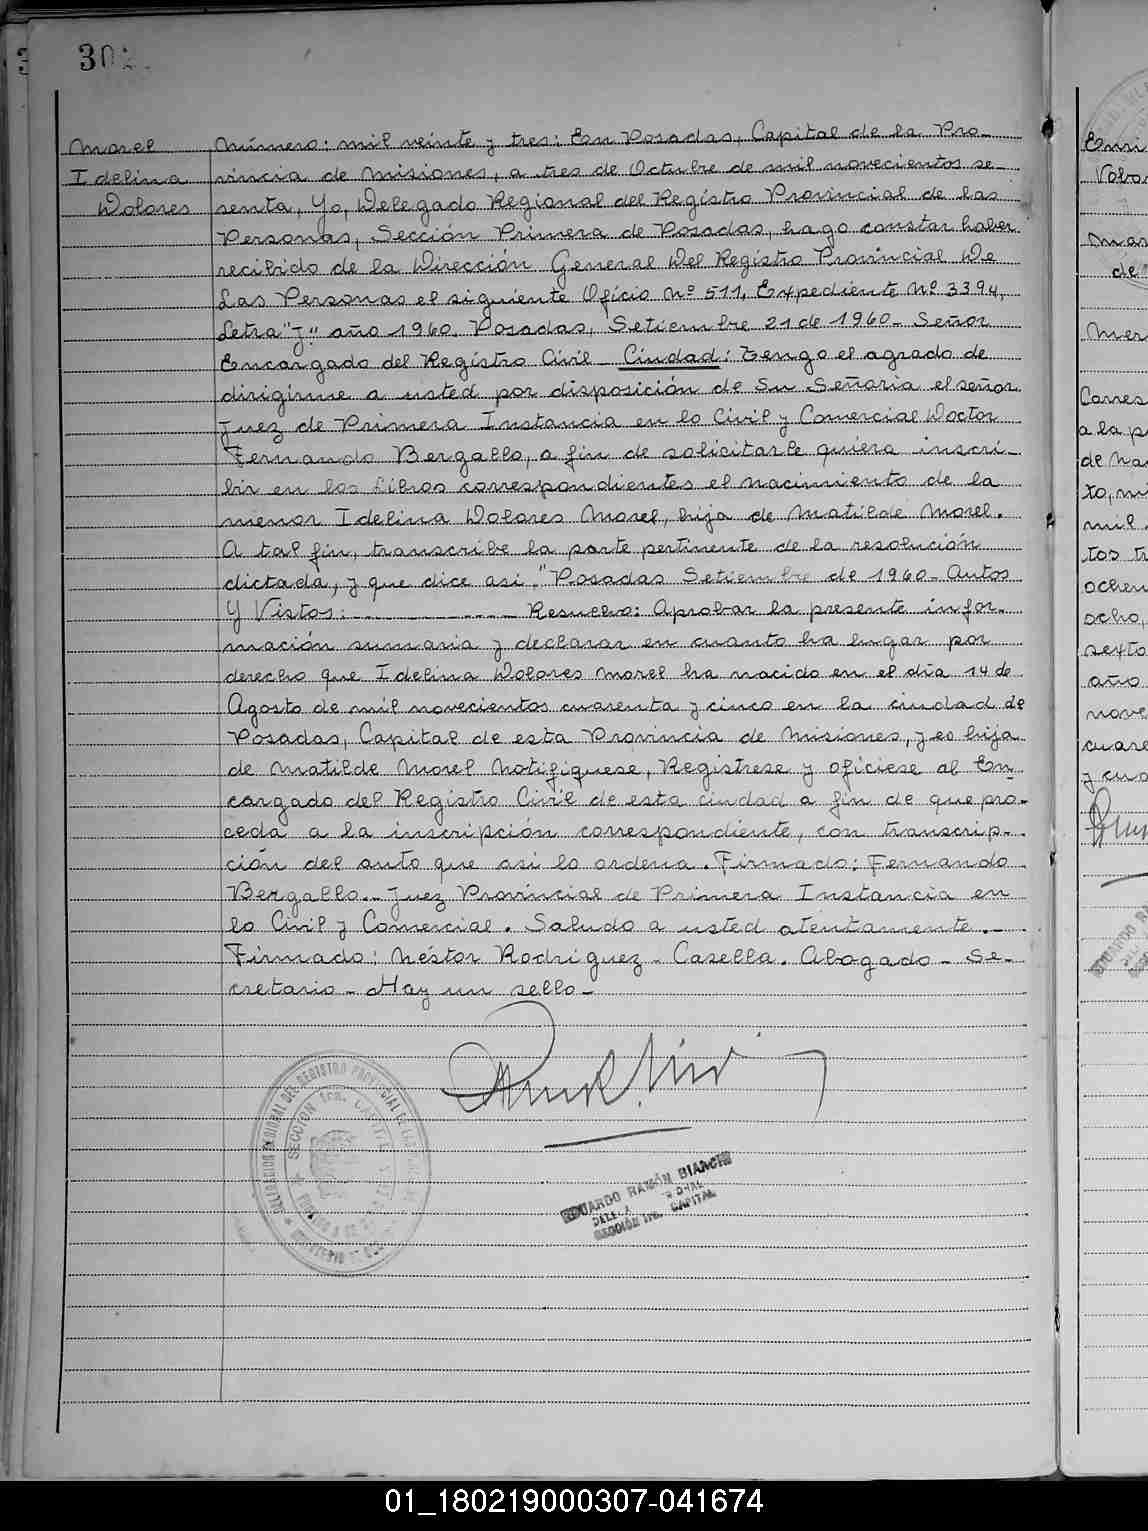 302
Morel
Idelina
Dolores
Número: mil veinte y tres: En Posadas, Capital de la Pro-
vincia de Misiones, a tres de Octubre de mil novecientos se-
senta, Yo, Delegado Regional del Registro Provincial de las
Personas, Sección Primera de Posadas, hago constar haber
recibido de la Dirección General Del Registro Provincial De
Las Personas el siguiente Oficio Nº 511, Expediente Nº 3394,
Letra "J" año 1960. Posadas, Setiembre 21 de 1960- Señor
Encargado del Registro Civil - Ciudad: Tengo el agrado de
dirigirme a usted por disposición de Su Señoria el señor
Juez de Primera Instancia en lo Civil y Comercial Doctor
Fernando Bergallo, a fin de solicitarle quiera inscri-
bir en los Libros correspondientes el nacimiento de la
menor Idelina Dolores Morel, hija de Matilde Morel.
A tal fin, transcribe la parte pertinente de la resolución
dictada, y que dice asi. "Posadas Setiembre de 1960- Autos
Y Vistos: ---------- Resuelvo: Aprobar la presente infor-
mación sumaria y declarar en cuanto ha lugar por
derecho que Idelina Dolores Morel ha nacido en el día 14 de
Agosto de mil novecientos cuarenta y cinco en la ciudad de
Posadas, Capital de esta Provincia de Misiones, y es hija
de Matilde Morel Notifiquese, Registrese y ofíciese al En-
cargado del Registro Civil de esta ciudad a fin de que pro-
ceda a la inscripción correspondiente, con transcrip-
ción del auto que asi lo ordena. Firmado: Fernando
Bergallo.- Juez Provincial de Primera Instancia en
lo Civil y Comercial. Saludo a usted atentamente.-
Firmado: Néstor Rodriguez - Casella. Abogado - Se-
cretario - Hay un sello -
DELEGACION REGIONAL DEL REGISTRO PROVINCIAL DE LAS
SECCION 1ra. CAPITAL
EDUARDO RAMÓN BIANCHI
SECCIÓN 1ra. CAPITAL
Mar
de
Mer
Corres
a la p
de na
to, mi
mil
tos tr
ochen
ocho,
sexto
año
nove
cuare
y cua
01_180219000307-041674